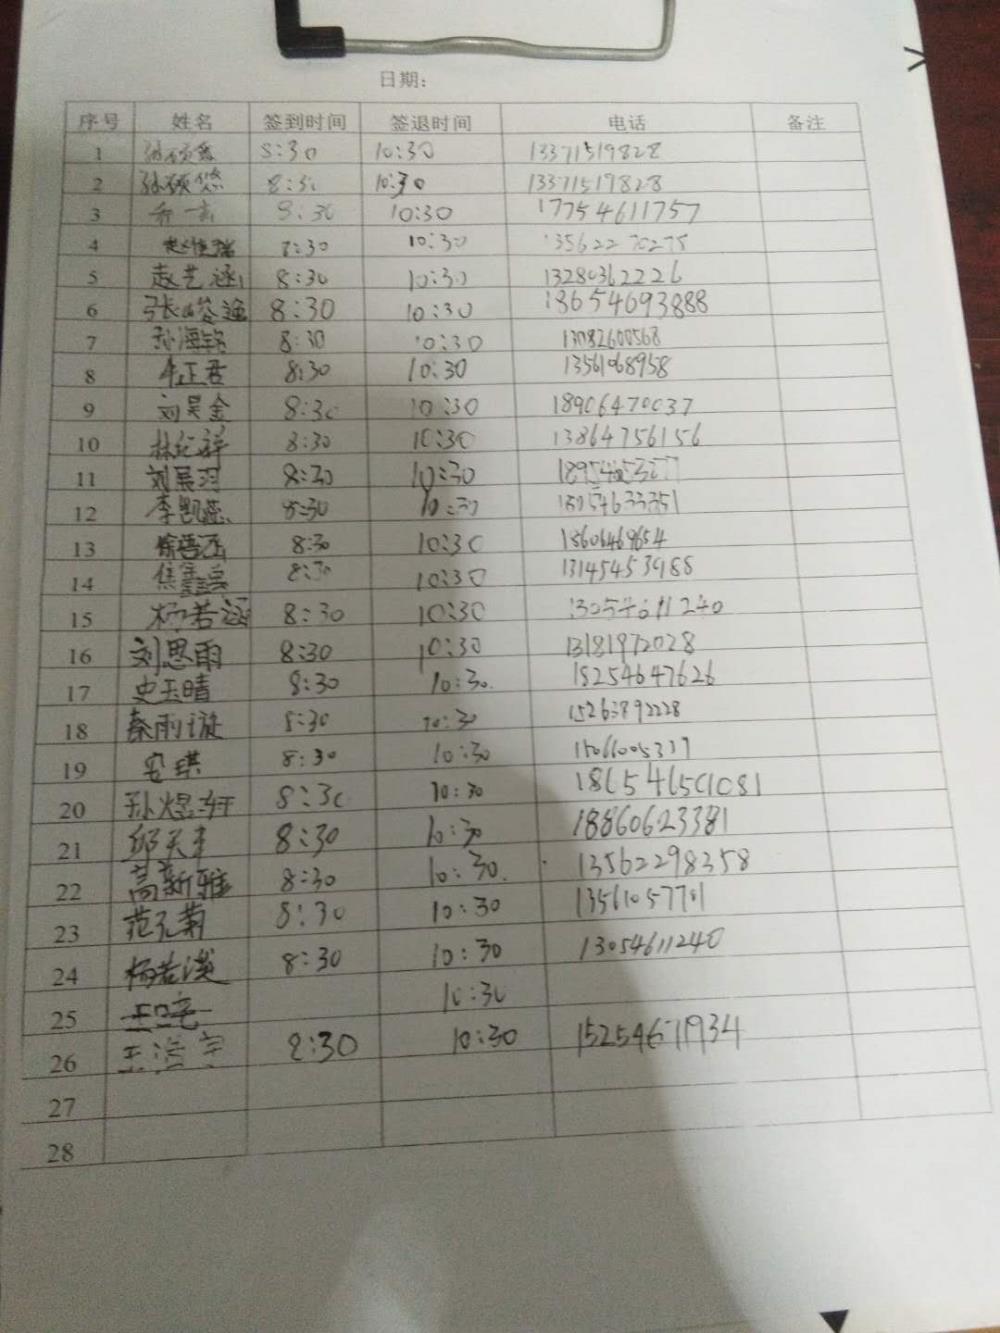 日期:
序号 姓名 签到时间 签退时间 电话 备注
1 8:30 10:30 13371519828
2 孙硕悠 8:30 10:30 13371519828
3 8:30 10:30 17754611757
4 8:30 10:30 13562270275
5 赵艺涵 8:30 10:30 13280362226
6 张峻逸 8:30 10:30 18654693888
7 孙海铭 8:30 10:30 13082600568
8 牟正君 8:30 10:30
9 刘昊金 8:30 10:30 18906470037
10 8:30 10:30 13864756156
11 刘展羽 8:30 10:30
12 8:30 10:30
13 8:30 10:30 18606469654
14 8:30 10:30 13145453988
15 杨若涵 8:30 10:30 13054611240
16 刘思雨 8:30 10:30 13181972028
17 史玉晴 8:30 10:30. 15254647626
18 蔡雨璇 8:30 10:30 15263892228
19 安琪 8:30 10:30
20 孙煜轩 8:30 10:30 186546501081
21 邱天丰 8:30 10:30 18860623381
22 高新雅 8:30 10:30. 13562298358
23 范孔菊 8:30 10:30 13561057701
24 杨若漢 8:30 10:30 13054611240
25 10:30
26 8:30 10:30 15254671934
27
28